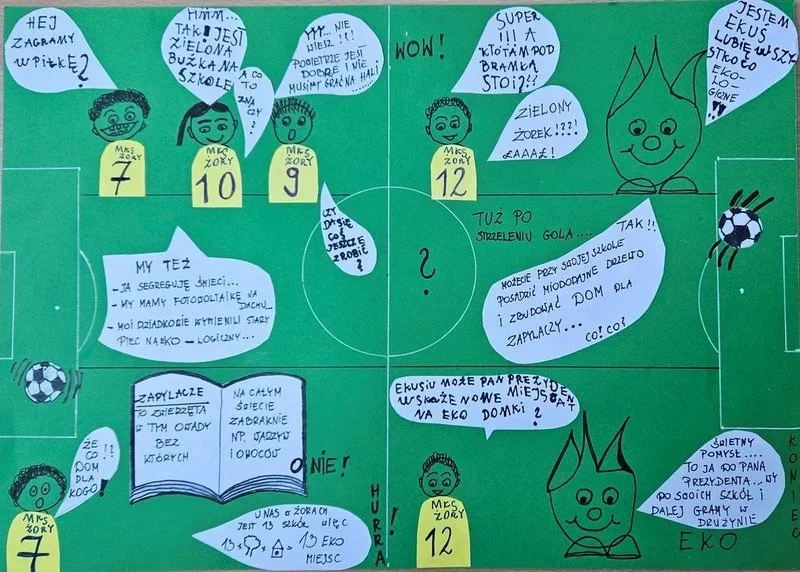 HEJ
ZAGRAMY
W PIŁKĘ?
HMM...
TAK! JEST
ZIELONA
BUŹKA NA
SZKOLE
A CO
TO
ZNA
CZY
?
YYY... NIE
WIESZ !?!
POWIETRZE JEST
DOBRE I NIE
MUSIMY GRAĆ NA HALI
MKS
ŻORY
7
MKS
ŻORY
10
MKS
ŻORY
9
WOW!
SUPER
!!! A
KTO TAM POD
BRAMKĄ
STOI???
ZIELONY
ŻOREK!??!
ŁAAAŁ!
MKS
ŻORY
12
JESTEM
EKUŚ
LUBIĘ WSZY
STKO CO
EKO-
LO-
GICZNE
!!
CZY
DA SIĘ
COŚ
JESZCZE
ZROBIĆ
?
MY TEŻ
- JA SEGREGUJĘ ŚMIECI...
- MY MAMY FOTOWOLTAIKĘ NA
DACHU
- MOI DZIADKOWIE WYMIENILI STARY
PIEC NA EKO - LOGICZNY...
?
TUŻ PO
STRZELENIU GOLA....
TAK!!
MOŻECIE PRZY SWOJEJ SZKOLE
POSADZIĆ MIODODAJNE DRZEWO
I ZBUDOWAĆ DOM DLA
ZAPYLACZY...
CO! CO?
ŻE
CO !?
DOM
DLA
KOGO!
MKS
ŻORY
7
ZAPYLACZE
TO ZWIERZĘTA
W TYM OWADY
BEZ
KTÓRYCH
NA CAŁYM
ŚWIECIE
ZABRAKNIE
NP. WARZYW
I OWOCÓW
O NIE!
U NAS W ŻORACH
JEST 13 SZKÓŁ WIĘC
13 x + = 13 EKO
MIEJSC
HURRA!
EKUSIU MOŻE PAN PREZYDENT
WSKAŻE NOWE MIEJSCA
NA EKO DOMKI?
MKS
ŻORY
12
ŚWIETNY
POMYSŁ....
TO JA DO PANA
PREZYDENTA...WY
DO SWOICH SZKÓŁ I
DALEJ GRAMY W
DRUŻYNIE
EKO
KONIEC